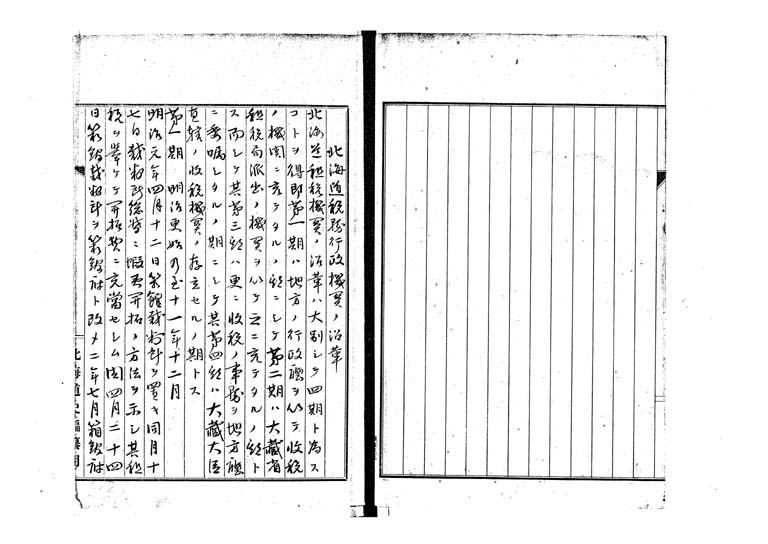 北海道税務行政機関ノ沿革
北海道租税機関ノ沿革ハ大別シテ四期ト為ス
コトヲ得即第一期ハ地方ノ行政庁ヲ以テ収税
ノ機関ニ充テタルノ期ニシテ第二期ハ大蔵省
租税局派出ノ機関ヲ以テ之ニ充テタルノ期ト
ス而シテ其第三期ハ更ニ収税ノ事務ヲ地方庁
ニ委嘱シタルノ期ニシテ其第四期ハ大蔵大臣
直轄ノ収税機関ノ存立セルノ期トス
第一期 明治更始乃至十一年十二月
明治元年四月十二日箱館裁判所ヲ置キ同月十
七日裁判所総督ニ蝦夷開拓ノ方法ヲ示シ其租
税ヲ挙ケテ開拓費ニ充当セシム閏四月二十四
日箱館裁判所ヲ箱館府ト改メ二年七月箱館府
北海道史編纂用